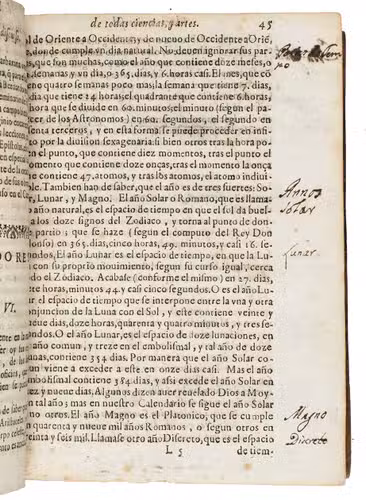 de todas ciencias, y artes. 45
al de Oriente a Occidente, y de nuevo de Occidente a Orié
te, donde cumple vn dia natural. No deven ignorar sus par
es, que son muchas, como el año que contiene doze meses, o
semanas y vn dia, o 365. dias, y 6. horas casi. El mes, que có
ene quatro semanas poco mas; la semana que tiene 7. dias,
dia que tiene 24 horas; el quadrante que contiene 6. horas,
hora que se divide en 60. minutos; el minuto (segun el pa
cer de los Astronomos) en 60. segundos, el segundo en
senta terceros, y en esta forma se puede proceder en infi
to por la division sexagenaria: si bien otros tras la hora po
en el punto, que contiene diez momentos, tras el punto el
omento que contiene doze onças, tras el momento la onça
e contiene 47. atomos, y tras los atomos, el atomo indivi
le. Tambien han de saber, que el año es de tres suertes: So
r, Lunar, y Magno. El año Solar o Romano, que es llama
o año natural, es el espacio de tiempo en que el sol da buel
a los doze signos del Zodiaco, y torna al punto de don
partio; que se haze (segun el computo del Rey Don
onso) en 365. dias, cinco horas, 49. minutos, y casi 16. se
ndos. El año Lunar es el espacio de tiempo, en que la Lu
con su proprio movimiento, segun su curso igual, cerca
do el Zodiaco. Acabase (conforme el mismo) en 27. dias,
te horas, minutos 44. y casi cinco segundos. O es el año Lu
r el espacio de tiempo que se interpone entre la vna y otra
onjuncion de la Luna con el Sol, y este contiene veinte y
ueve dias, doze horas, quarenta y quatro minutos, y tres se
ndos. O el año Lunar, es el espacio de doze lunaciones, en
año comun, y treze en el embolismal, y tal año de doze
unas, contiene 354 dias. Por manera que al año Solar co
un viene a exceder a este en onze dias casi. Mas el año
mbolismal contiene 384. dias, y assi excede el año Solar en
ez y nueve dias. Algunos dizen aver revelado Dios a Moy
n tal año; mas en nuestro Calendario se sigue el año Solar
no otros. El año Magno es el Platonico, que se cumple
n quarenta y nueve mil años Romanos, o segun otros en
einta y seis mil. Llamase otro año Discreto, que es el espacio
L 5 de tiem-
Annos
Solar
Lunar
Magno
Discreto
DO RE
VI.